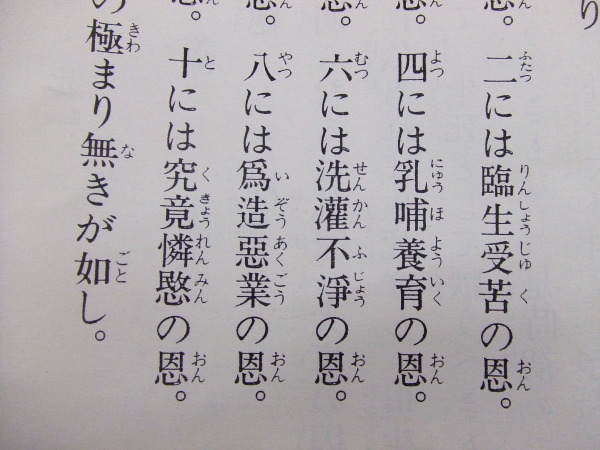 り
恩。二には臨生受苦の恩。
恩。四には乳哺養育の恩。
恩。六には洗灌不淨の恩。
恩。八には爲造惡業の恩。
恩。十には究竟憐愍の恩。
の極まり無きが如し。